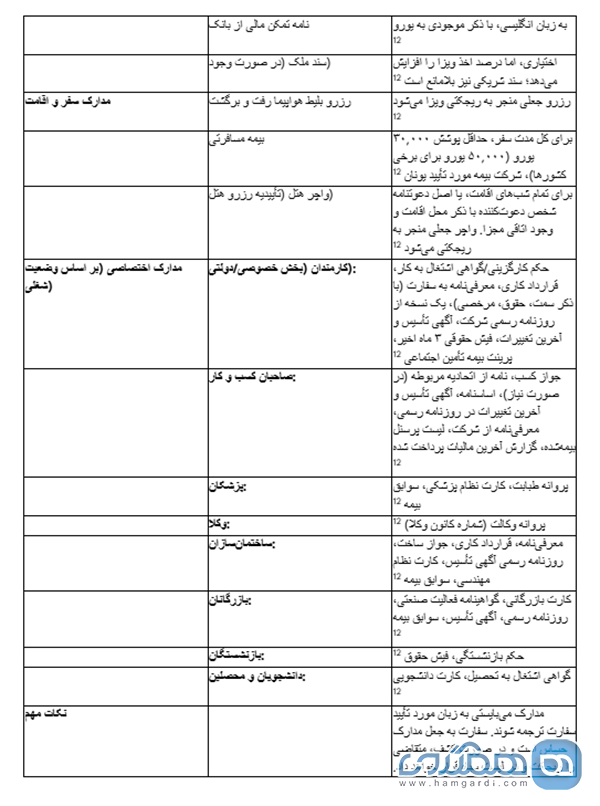 نامه تمکن مالی از بانک
به زبان انگلیسی، با ذکر موجودی به یورو
12
(سند ملک (در صورت وجود
اختیاری، اما درصد اخذ ویزا را افزایش
می‌دهد؛ سند شریکی نیز بلامانع است 12
مدارک سفر و اقامت
رزرو بلیط هواپیما رفت و برگشت
رزرو جعلی منجر به ریجکتی ویزا می‌شود
12
بیمه مسافرتی
برای کل مدت سفر، حداقل پوشش ۳۰,۰۰۰
یورو (۵۰,۰۰۰ یورو برای برخی
کشورها)، شرکت بیمه مورد تأیید یونان 12
(واچر هتل (تأییدیه رزرو هتل
برای تمام شب‌های اقامت، یا اصل دعوتنامه
شخص دعوت‌کننده با ذکر محل اقامت و
وجود اتاقی مجزا. واچر جعلی منجر به
ریجکتی می‌شود 12
مدارک اختصاصی (بر اساس وضعیت
(شغلی
:(کارمندان (بخش خصوصی/دولتی
حکم کارگزینی/گواهی اشتغال به کار،
قرارداد کاری، معرفی‌نامه به سفارت (با
ذکر سمت، حقوق، مرخصی)، یک نسخه از
روزنامه رسمی شرکت، آگهی تأسیس و
آخرین تغییرات، فیش حقوقی ۳ ماه اخیر،
پرینت بیمه تأمین اجتماعی 12
:صاحبان کسب و کار
جواز کسب، نامه از اتحادیه مربوطه (در
صورت نیاز)، اساسنامه، آگهی تأسیس و
آخرین تغییرات در روزنامه رسمی،
معرفی‌نامه از شرکت، لیست پرسنل
بیمه‌شده، گزارش آخرین مالیات پرداخت شده
12
:پزشکان
پروانه طبابت، کارت نظام پزشکی، سوابق
بیمه 12
:وکلا
پروانه وکالت (شماره کانون وکلا) 12
:ساختمان‌سازان
معرفی‌نامه، قرارداد کاری، جواز ساخت،
روزنامه رسمی آگهی تأسیس، کارت نظام
مهندسی، سوابق بیمه 12
:بازرگانان
کارت بازرگانی، گواهینامه فعالیت صنعتی،
روزنامه رسمی، آگهی تأسیس، سوابق بیمه
12
:بازنشستگان
حکم بازنشستگی، فیش حقوق 12
:دانشجویان و محصلین
گواهی اشتغال به تحصیل، کارت دانشجویی
12
نکات مهم
مدارک می‌بایستی به زبان مورد تأیید
سفارت ترجمه شوند. سفارت به جعل مدارک
حساس است و در صورت کشف، متقاضی
همگردی
www.hamgardi.com